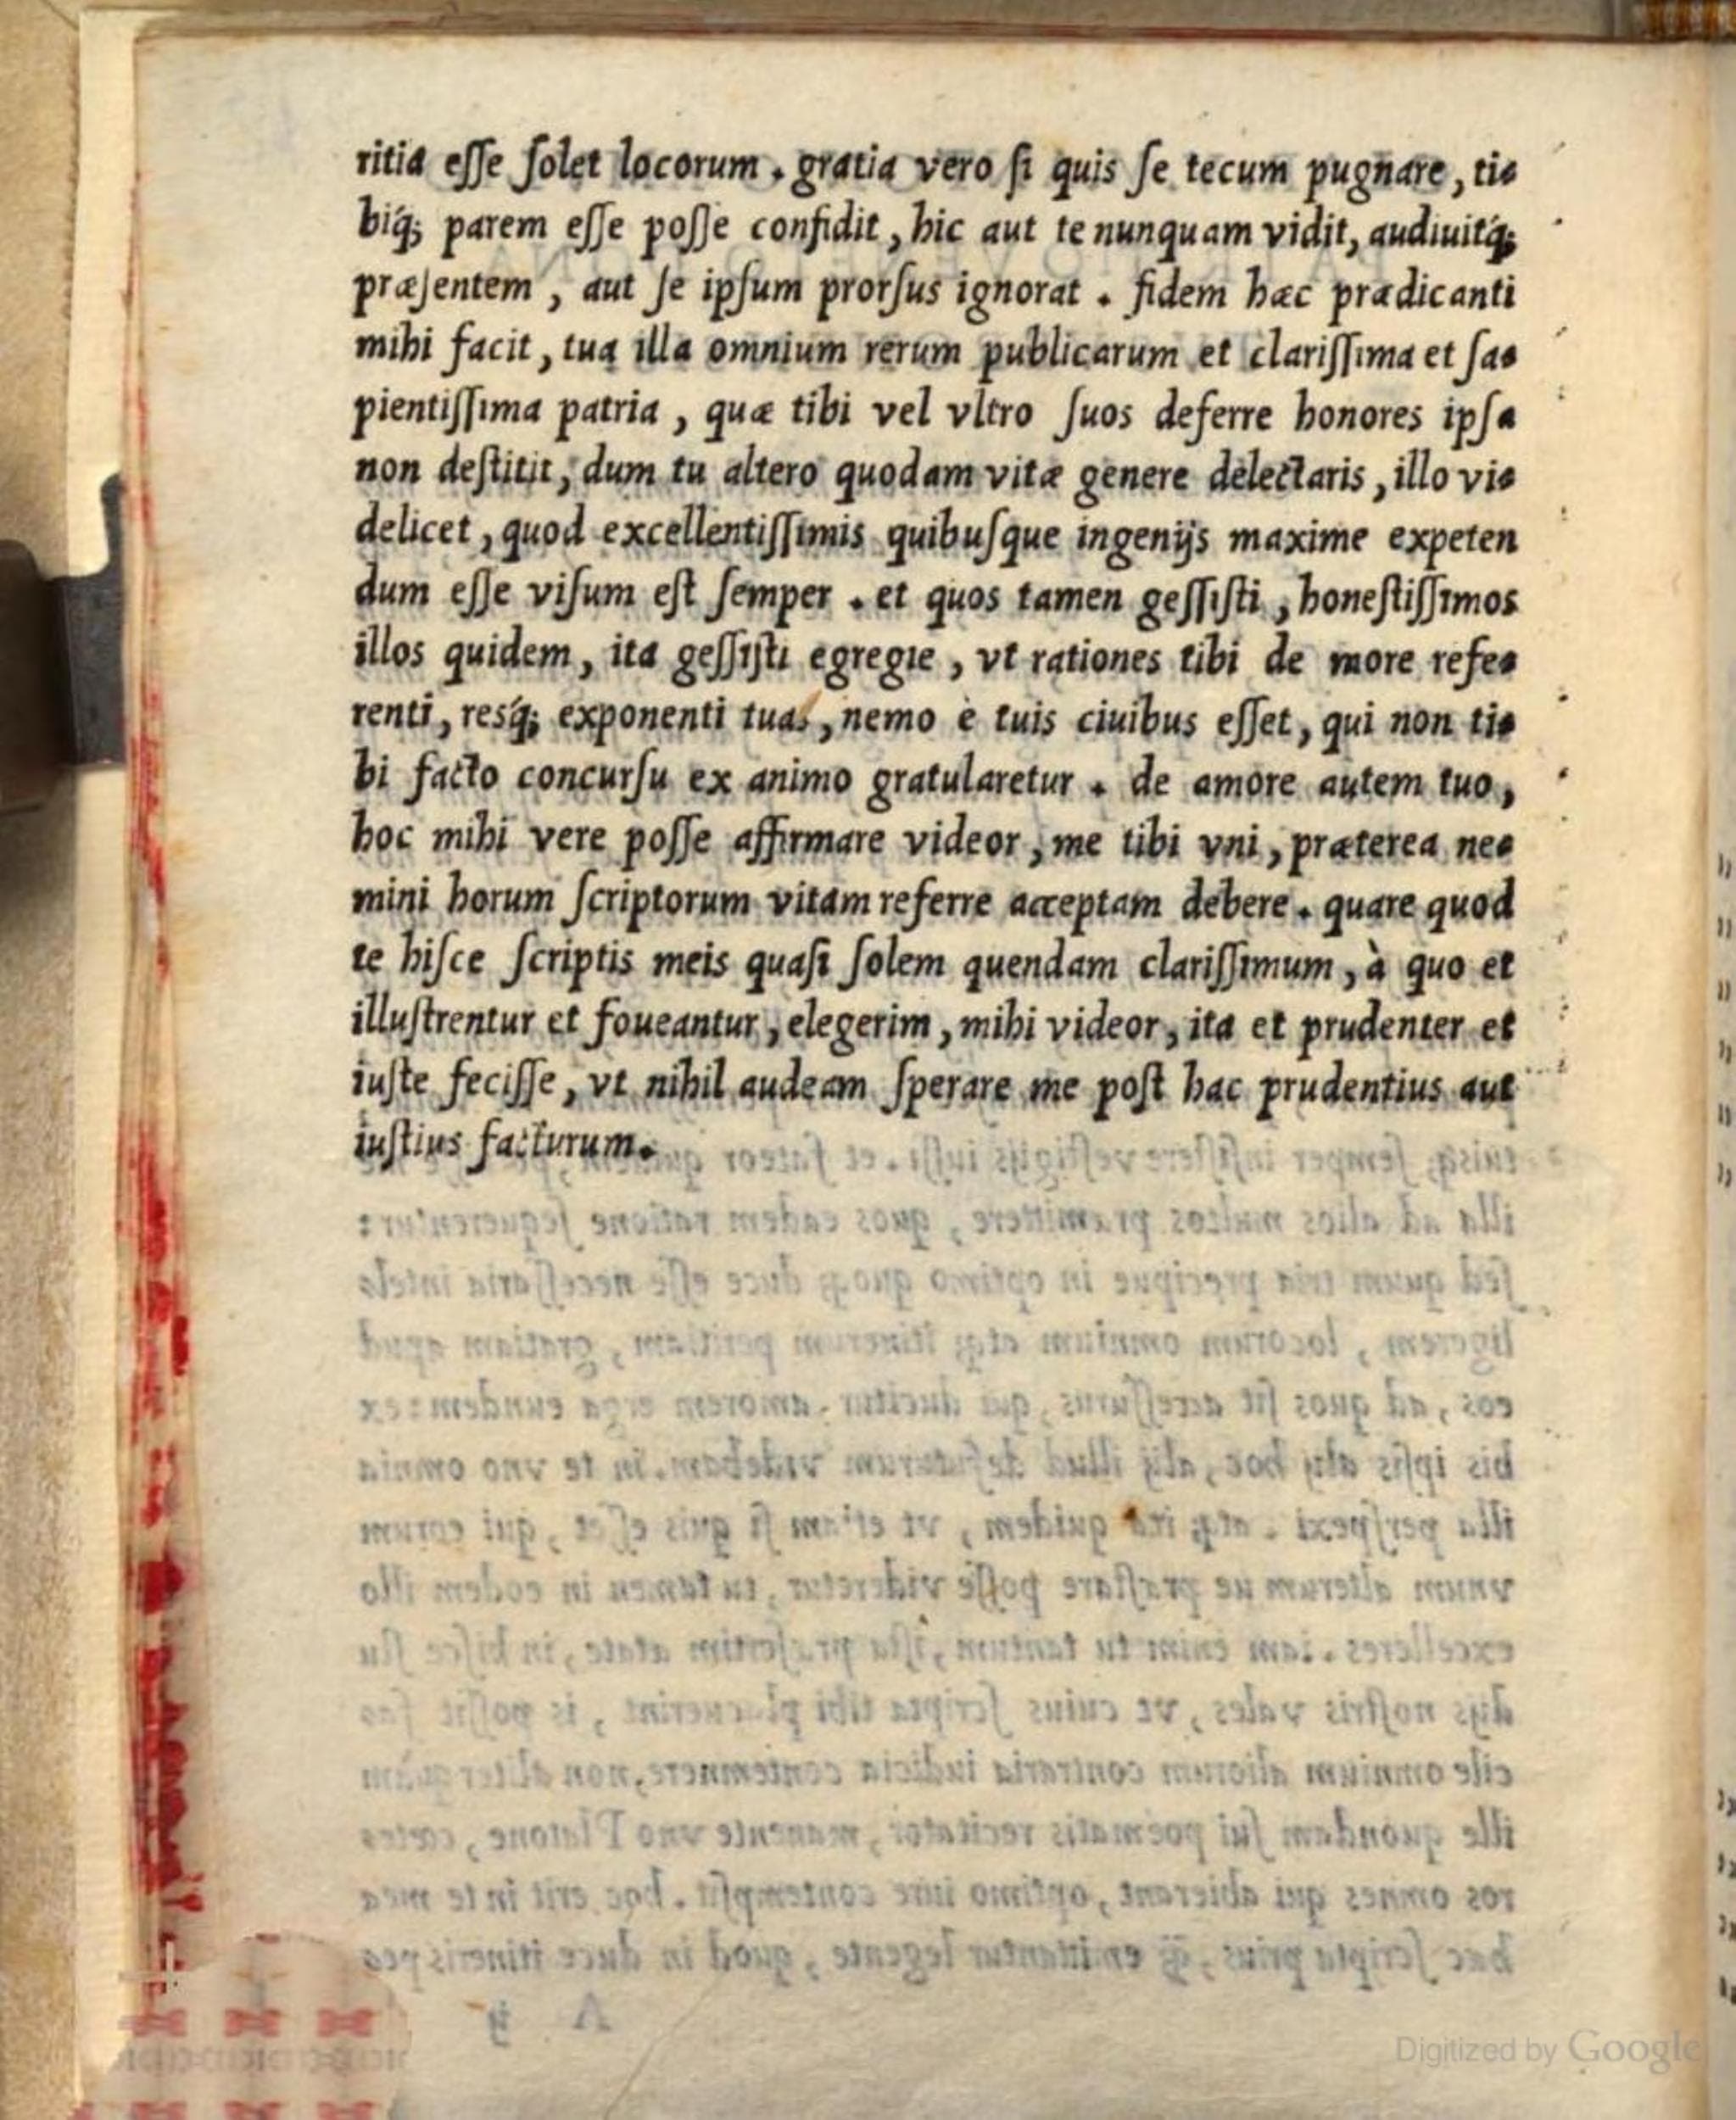 ritia eſſe ſolet locorum. gratia vero ſi quis ſe tecum pugnare, ti-
biq́; parem eſſe poſſe confidit, hic aut te nunquam vidit, audiuitq́;
præſentem, aut ſe ipſum prorſus ignorat. fidem hæc prædicanti
mihi facit, tua illa omnium rerum publicarum et clariſſima et ſa-
pientiſſima patria, quæ tibi vel vltro ſuos deferre honores ipſa
non deſtitit, dum tu altero quodam vitæ genere delectaris, illo vi-
delicet, quod excellentiſſimis quibuſque ingenijs maxime expeten
dum eſſe viſum eſt ſemper. et quos tamen geſſiſti, honeſtiſſimos
illos quidem, ita geſſiſti egregie, vt rationes tibi de more refe-
renti, resq́; exponenti tuas, nemo è tuis ciuibus eſſet, qui non ti-
bi facto concurſu ex animo gratularetur. de amore autem tuo,
hoc mihi vere poſſe affirmare videor, me tibi vni, præterea ne-
mini horum ſcriptorum vitam referre acceptam debere. quare quod
te hiſce ſcriptis meis quaſi ſolem quendam clariſſimum, à quo et
illuſtrentur et foueantur, elegerim, mihi videor, ita et prudenter et
iuſte feciſſe, vt nihil audeam ſperare me poſt hac prudentius aut
iuſtius facturum.
Digitized by Google